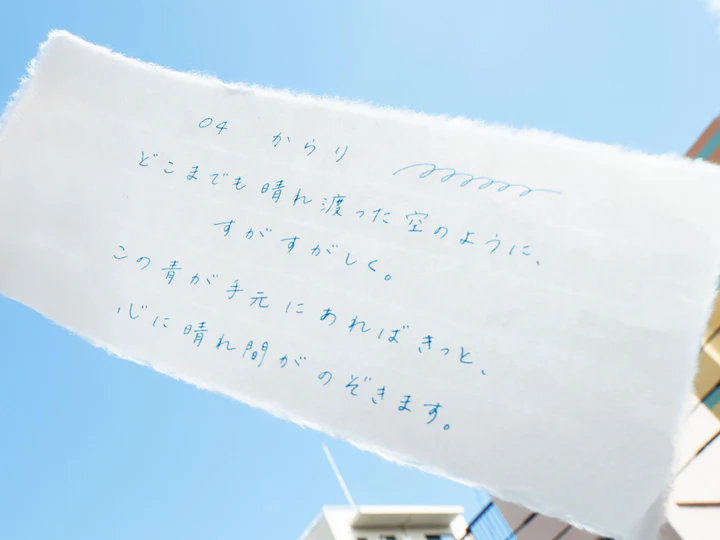 04 からり
どこまでも晴れ渡った空のように、
すがすがしく。
この青が手元にあればきっと、
心に晴れ間がのぞきます。